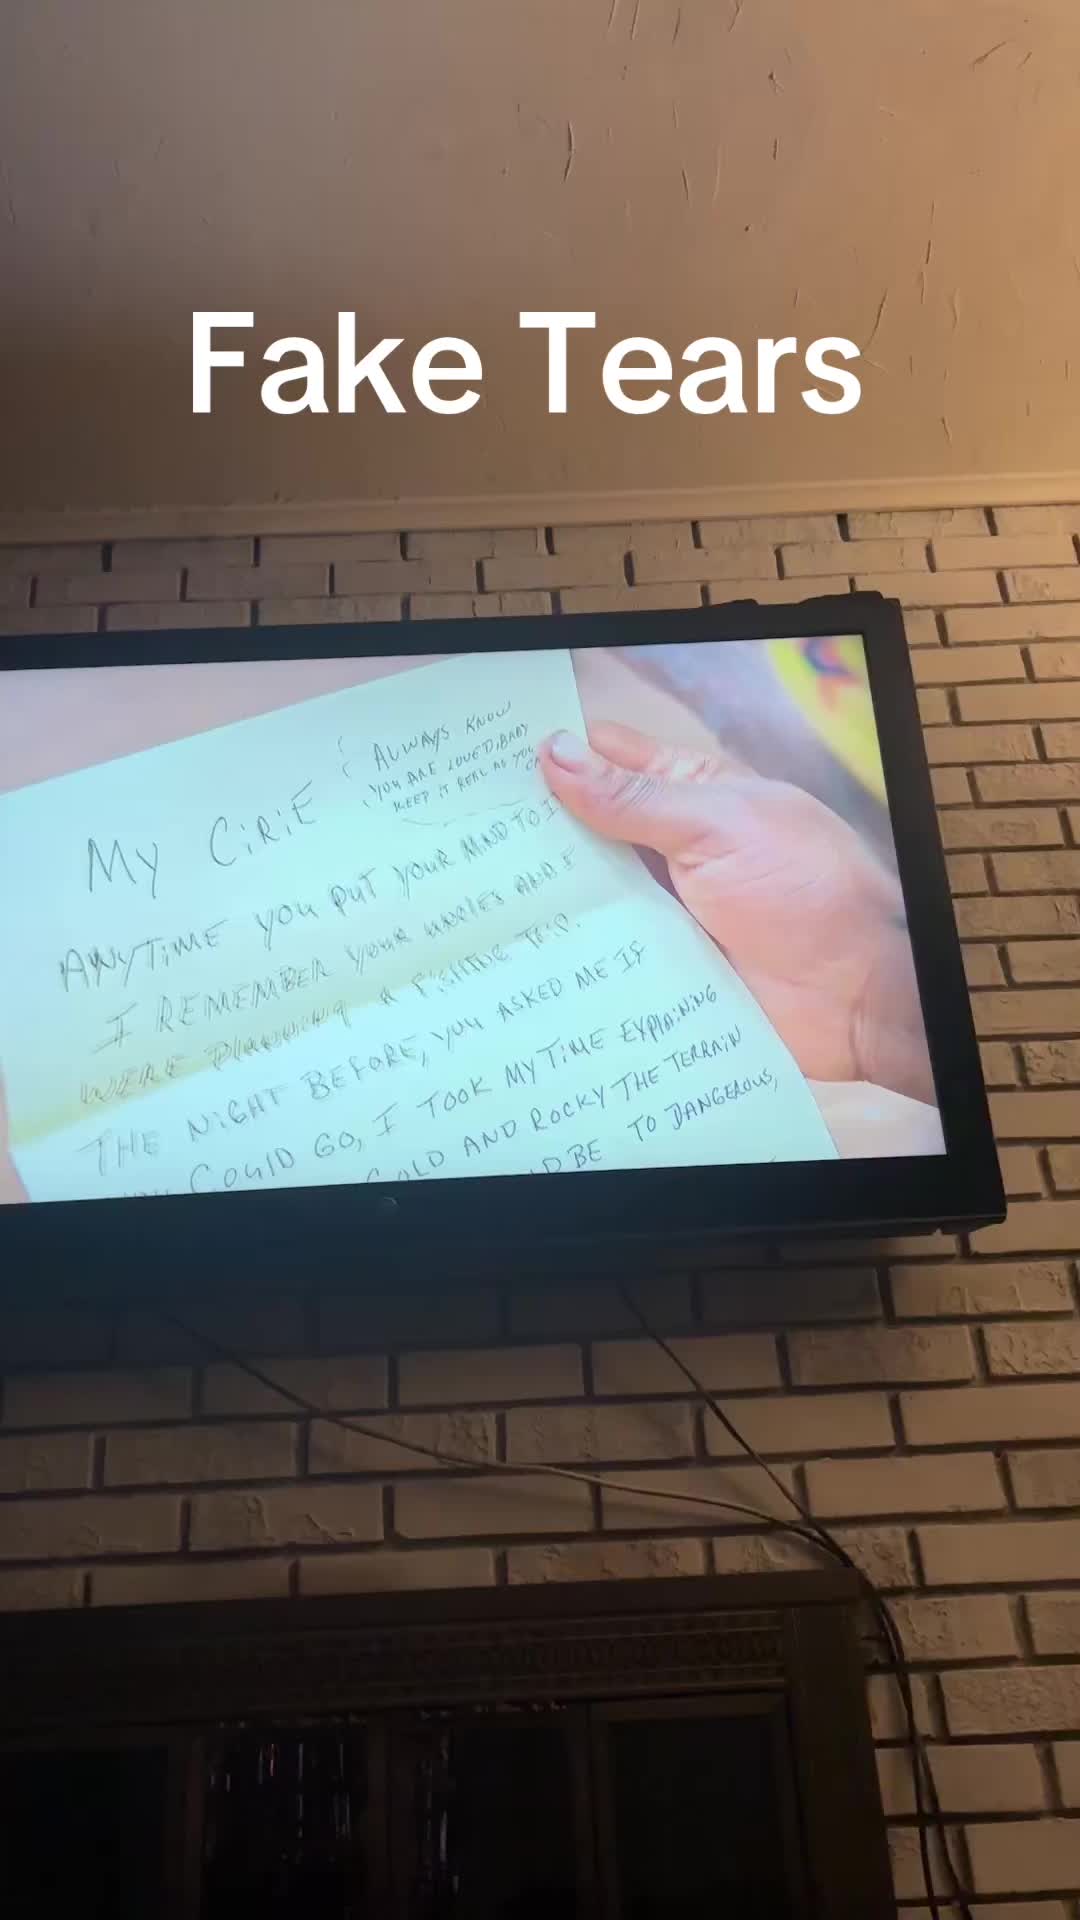 Fake Tears
ALWAYS KNOW
YOU ARE LOVED, BABY
KEEP IT REAL AS YOU
MY CiRiE
ANYTIME YOU PUT YOUR MIND TO IT
I REMEMBER YOUR UNCLES AND I
WERE PLANNING A FISHING TRIP.
THE NIGHT BEFORE, YOU ASKED ME IF
COULD GO, I TOOK MY TIME EXPLAINING
COLD AND ROCKY THE TERRAIN
BE TO DANGEROUS,